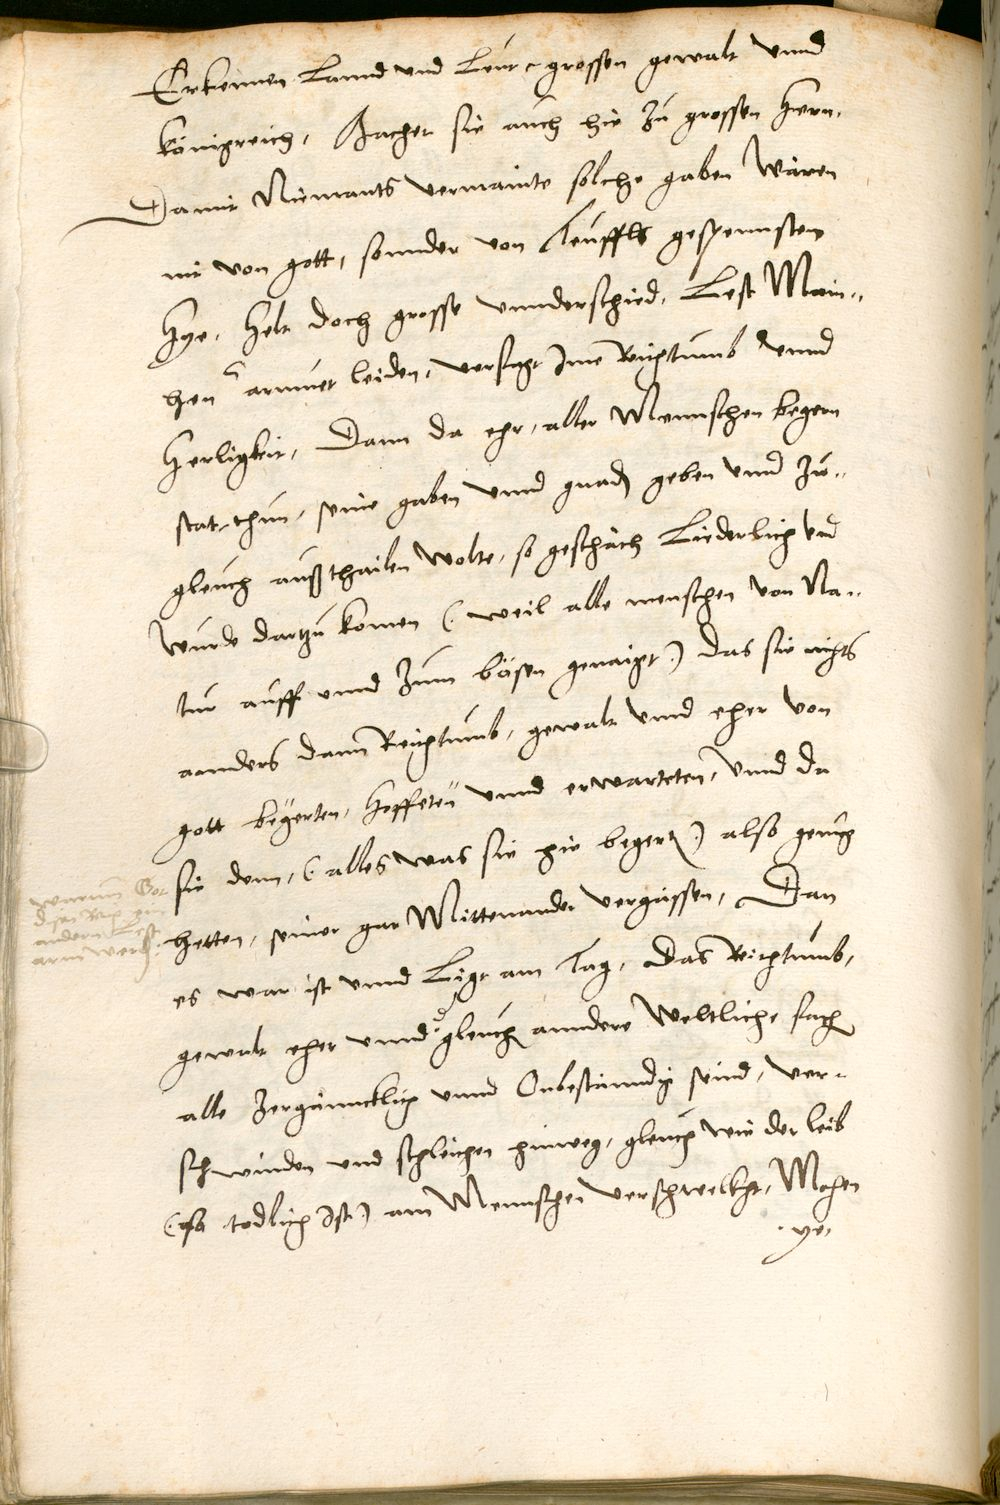 Erkennen Lannd und Leut, grossen gewalt unnd
königreich, Machet sie auch hie zu grossen Herrn,
Damit Niemants vermainte solche gaben wären
nit von gott, sonnder von Teuffls gespennsten
Hye, Helt doch grosse unnderschied, Lest Main-
hen armuet leiden, versagt Ime Reichtumb unnd
Herligkeit, Dann da ehr, aller Mennschen begern
stat thun, seine gaben unnd gnad geben unnd zu-
gleuch außthailen wolte, so geschäch Liederlich und
wurde dartzu komen (weil alle menschen von Na-
tur auff unnd zum bösen genaigt) das sie nichts
annders dann Reichtumb, gewalt unnd eher von
gott begerten, Hoffeten unnd erwarteten, Unnd da
sie denn, (alles was sie hie begert) also genug
hetten, seiner gar Mittenander vergässen, Dan
es war ist unnd Ligt am Tag, Das Reichtumb,
gewalt eher unnd gleuch anndere Weltliche sach
alle Zergänncklich unnd Onbestänndig seind, ver-
schwinden und schleichen hinweg, gleuch wie der leib
(so todlich Ist) am Mennschen verschwelkht, Mehen
ye,
warumb Got
den Reich zum
andern Lest
arm werden